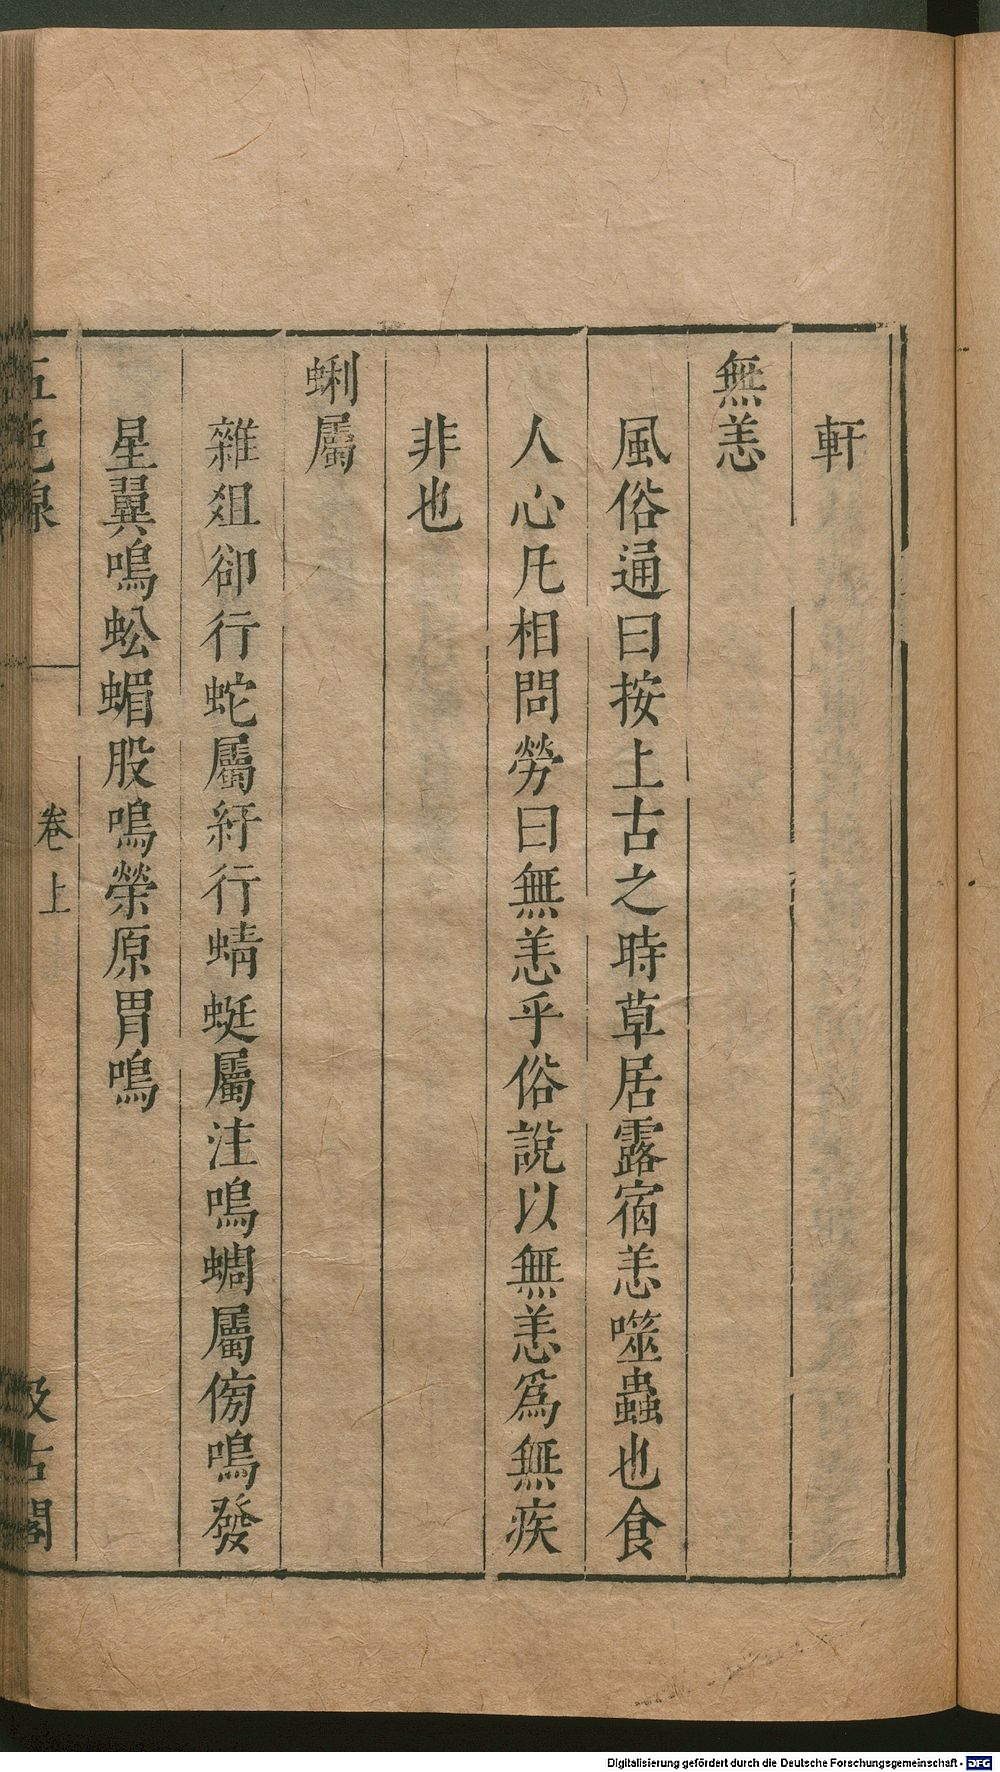 軒
無恙
風俗通曰按上古之時草居露宿恙噬蟲也食
人心凡相問勞曰無恙乎俗說以無恙爲無疾
非也
蜊屬
雜爼卻行蛇屬紆行蜻蜓屬注鳴蜩屬傍鳴發
星翼鳴蚣蝞股鳴榮原胃鳴
五色線
卷上
汲古閣
Digitalisierung gefördert durch die Deutsche Forschungsgemeinschaft - DFG